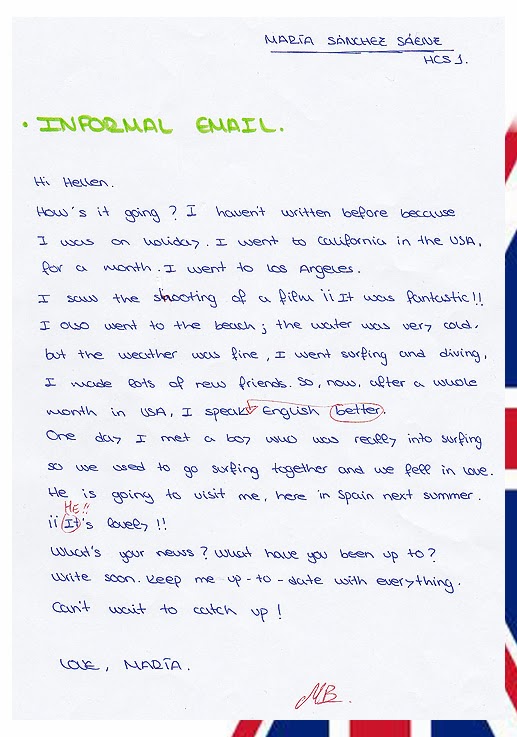 MARÍA SÁNCHEZ SÁENZ
HCS 1.
• INFORMAL EMAIL.
Hi Hellen.
How's it going? I haven't written before because
I was on holiday. I went to California in the USA,
for a month. I went to Los Angeles.
I saw the shooting of a film ¡¡It was fantastic!!
I also went to the beach; the water was very cold.
but the weather was fine, I went surfing and diving,
I made lots of new friends. So, now, after a whole
month in USA, I speak English better.
One day I met a boy who was really into surfing
so we used to go surfing together and we fell in love.
He is going to visit me, here in Spain next summer.
HE!!
¡¡ It's lovely !!
What's your news? What have you been up to?
Write soon. Keep me up-to-date with everything.
Can't wait to catch up!
LOVE, MARÍA.
MB.